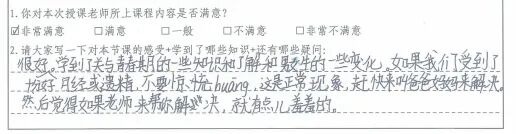 1. 你对本次授课老师所上课程内容是否满意？
☑非常满意 □满意 □一般 □不满意 □非常不满意
2. 请大家写一下对本节课的感受+学到了哪些知识+还有哪些疑问：
很好。学到了关与青春期的一些知识和了解和发生的一些变化。如果我们受到了
月经或遗精，不要惊慌huāng，这是正常现象，赶快来叫爸爸妈妈来解决。
然后觉得如果老师来帮你解决，就有点儿羞羞的。